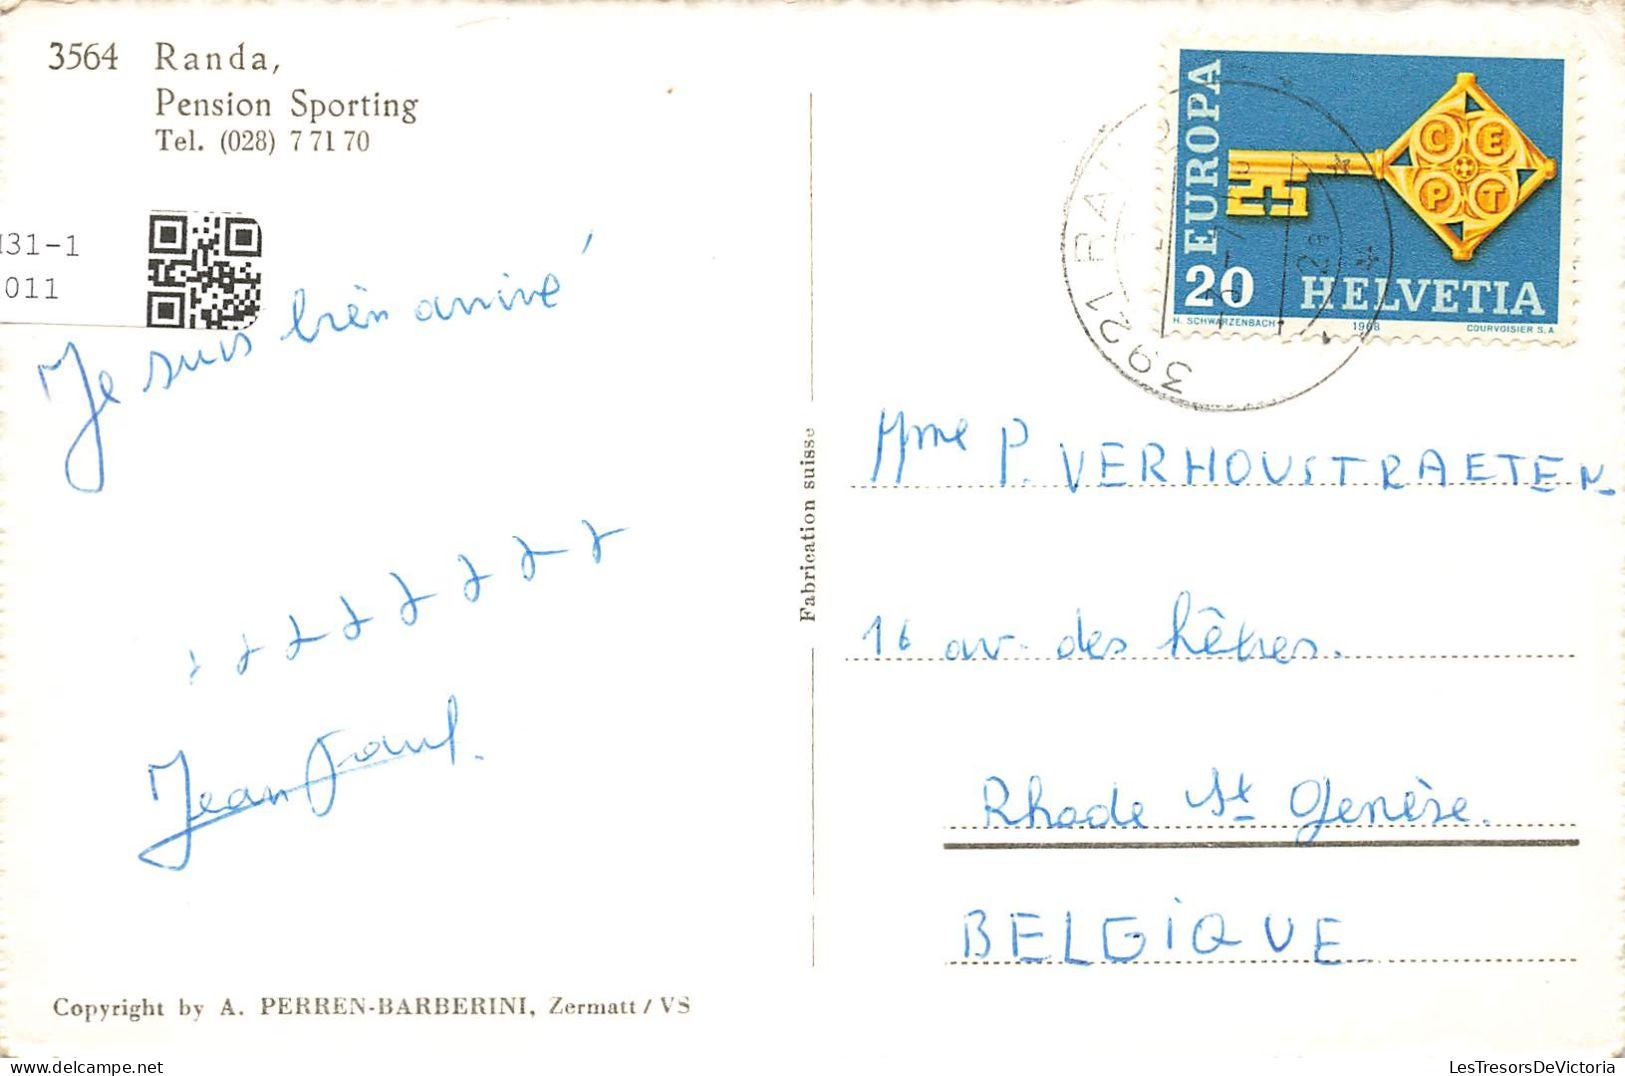 3564 Randa,
Pension Sporting
Tel. (028) 7 71 70
31-1
011
Je suis bien arrivé
Jean Paul.
Copyright by A. PERREN-BARBERINI, Zermatt / VS
Fabrication suisse
EUROPA
CEPT
20 HELVETIA
H. SCHWARZENBACH 1968 COURVOISIER S.A.
3921 RANDA
Mme P. VERHOUSTRAETEN.
16 av. des hêtres.
Rhode St Genèse.
BELGIQUE.
LesTresorsDeVictoria